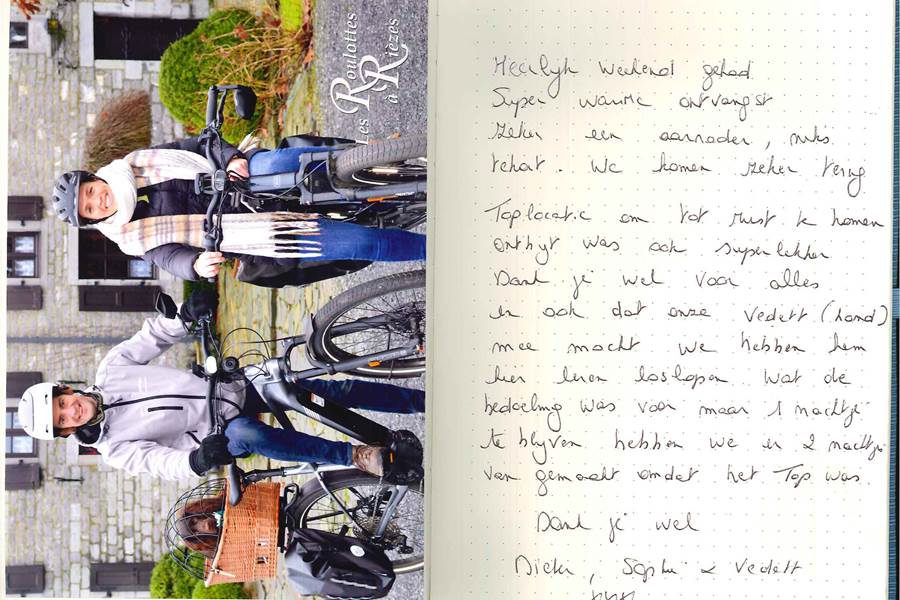 Les Roulottes
à Rièzes
Heerlijk weekend gehad
Super warme ontvangst
zeker een aanrader, niks
tekort. We komen zeker terug
Toplocatie om tot rust te komen
ontbyt was ook superlekker
Dank je wel voor alles
en ook dat onze Vedett (hond)
mee mocht we hebben hem
hier leren loslopen wat de
bedoeling was voor maar 1 nachtje
te blyven hebben we er 2 nachtjes
van gemaakt omdat het Top was
Dank je wel
Dieter, Sophie & Vedett